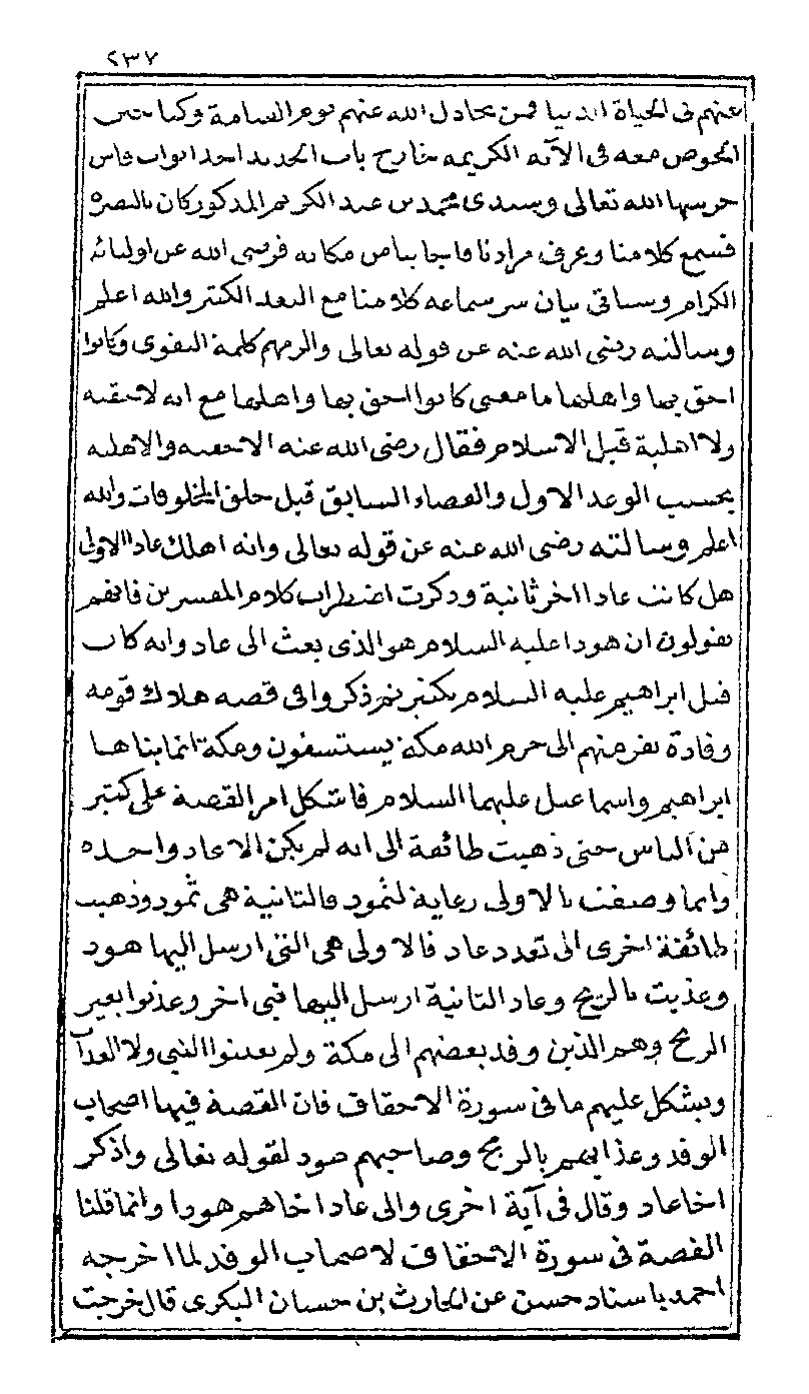 ٢٣٧
عنهم فى الحياة الدنيا فمن يجادل الله عنهم يوم القيامة وكنا حين
الخوض معه فى الآية الكريمة خارج باب الحديد احد ابواب فاس
حرسها الله تعالى وسيدى محمد بن عبد الكريم المذكور كان بالبصرة
فسمع كلامنا وعرف مرادنا فاجابنا من مكانه فرضى الله عن اوليائه
الكرام وسياتى بيان سر سماعه كلامنا مع البعد الكثير والله اعلم
وسالته رضى الله عنه عن قوله تعالى والزمهم كلمة التقوى وكانوا
احق بها واهلها ما معنى كانوا احق بها واهلها مع انه لا حقية
ولا اهلية قبل الاسلام فقال رضى الله عنه الاحقية والاهلية
بحسب الوعد الاول والقضاء السابق قبل خلق المخلوقات والله
اعلم وسالته رضى الله عنه عن قوله تعالى وانه اهلك عادا الاولى
هل كانت عادا اخر ثانية وذكرت اضطراب كلام المفسرين فانهم
يقولون ان هودا عليه السلام هو الذى بعث الى عاد وانه كان
قبل ابراهيم عليه السلام بكثير ثم ذكروا فى قصة هلاك قومه
وفادة نفر منهم الى حرم الله مكة يستسقون ومكة انما بناها
ابراهيم واسماعيل عليهما السلام فاشكل امر القصة على كثير
من الناس حتى ذهبت طائفة الى انه لم يكن الا عاد واحدة
وانما وصفت بالاولى رعاية لثمود فالثانية هى ثمود وذهبت
طائفة اخرى الى تعدد عاد فالاولى هى التى ارسل اليها هود
وعذبت بالريح وعاد الثانية ارسل اليها نبى اخر وعذبوا بغير
الريح وهم الذين وفد بعضهم الى مكة ولم يعينوا النبي ولا العذاب
ويشكل عليهم ما فى سورة الاحقاف فان القصة فيها اصحاب
الوفد وعذابهم بالريح وصاحبهم هود لقوله تعالى واذكر
اخا عاد وقال فى آية اخرى والى عاد اخاهم هودا وانما قلنا
القصة فى سورة الاحقاف لاصحاب الوفد لما اخرجه
احمد باسناد حسن عن الحارث بن حسان البكرى قال خرجت